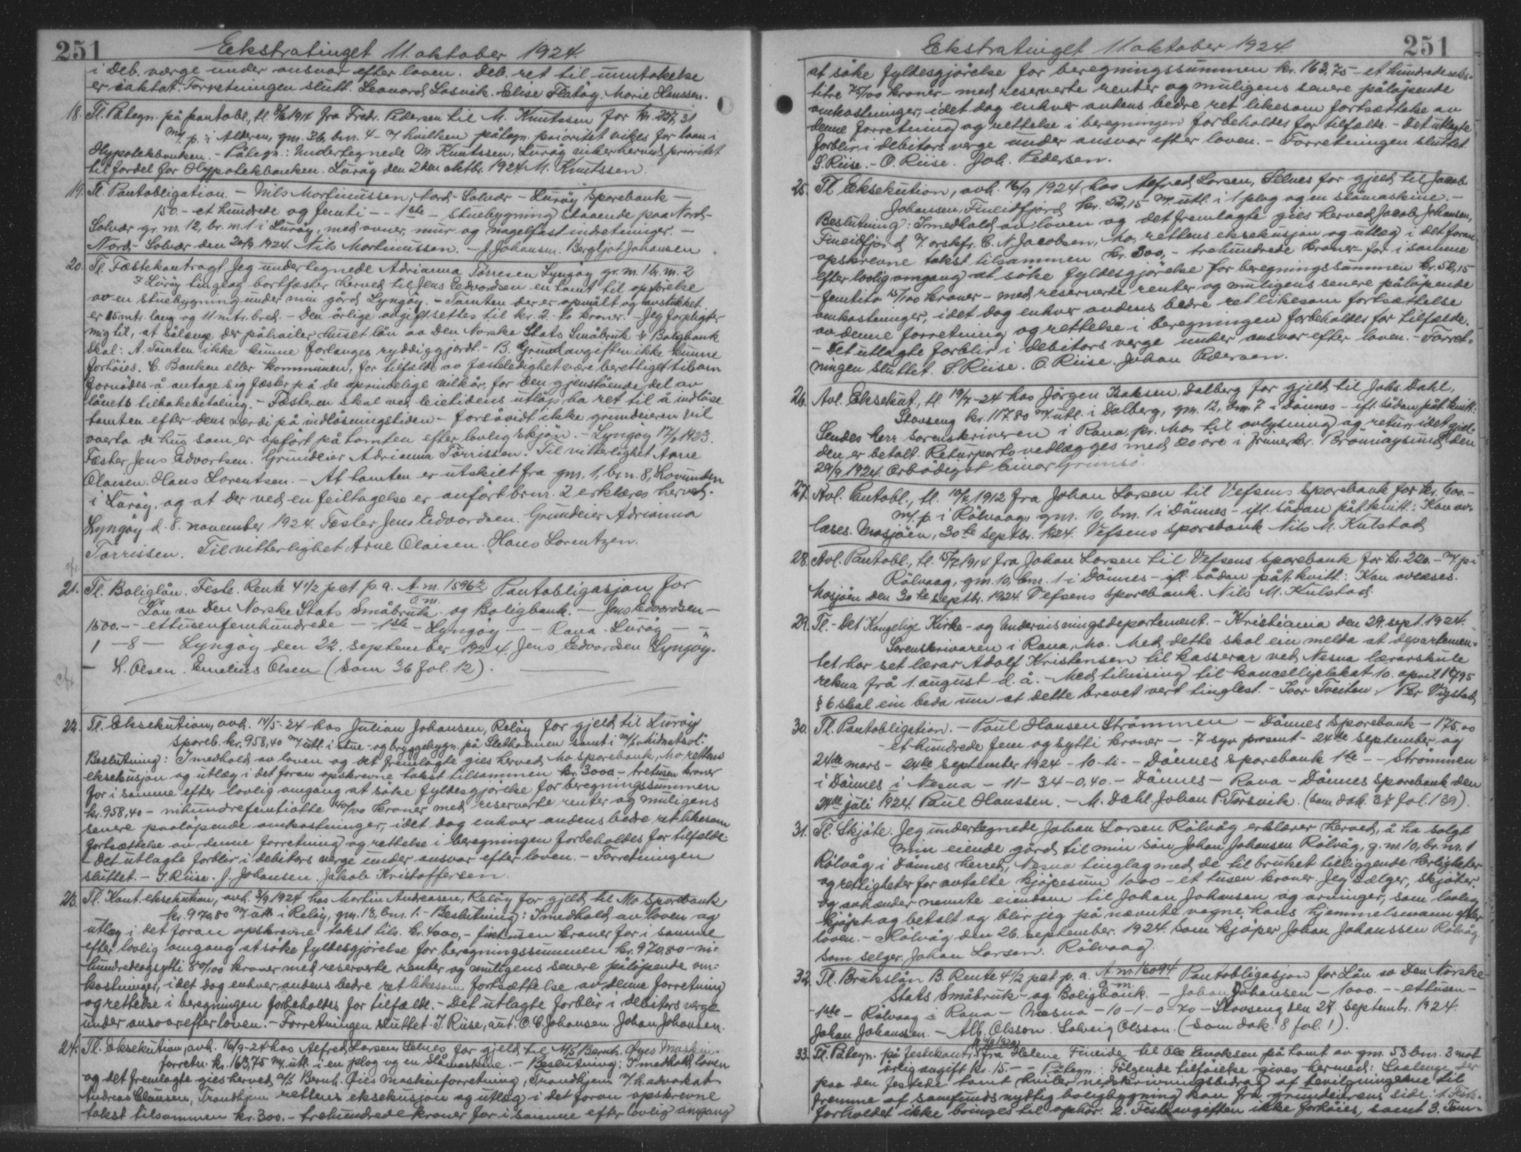 251 Ekstratinget 11 oktober 1924
i deb. værge under ansvar efter loven. Deb. ret til unntakelse
er iaktat. Forretningen slutt. Leonard Løsvik. Elise Flatøy. Marie Hanssen.
18. Tl. Påtegn. på pantobl., tl. 1914 fra Fredr. Pedersen til M. Knutssen for kr. 237,31
m/ p. i Aldren, gm. 36, bnr. 4. m/ hvilken påtegn. prioritet vikes for laan i
Hypotekbanken. - Påtegn: Undertegnede M. Knutssen, Lurøy viker herved prioritet
til fordel for Hypotekbanken. Lurøy den 2den oktbr. 1924 M. Knutssen.
19. Tl. Pantobligation. - Nils Mortinussen, Nord-Solvær - Lurøy Sparebank -
150 - et hundrede og femti - - 1ste - stuebygning staaende paa Nord-
Solvær gr. m. 12, br. m. 1 i Lurøy, med ovner, mur og nagelfast indretninger. -
Nord-Solvær den 20/9 1924. Nils Mortinussen. - J. Johansen. Bergljot Johansen
20. Tl. Fæstekontragt Jeg undertegnede Adrianna Tørrisen Lyngøy gr. m. 1 br. m. 2
i Lurøy tinglag bortfæster herved til Jens Edvardsen en tomt til opførelse
av en stuebygning under min gård Lyngøy. - Tomten der er opmålt og avstukket
er 15 mtr. lang og 11 mtr. bred. - Den årlige avgift settes til kr. 2. to kroner. - Jeg forpligter
mig til, at sålenge der påhviler huset lån av Den Norske Stats Småbruk & Boligbank
skal: A. Tomten ikke kunne forlanges ryddiggjort. - B. Grundavgiften ikke kunne
forhøies. C. Banken eller kommunen, for tilfælde av fæsteledighet være berettiget til om
fornødes å antage sig fæster på de oprindelige vilkår, for den gjenstående del av
lånets tilbakebetaling. - Fæsteren skal ved leietidens utløp ha ret til å indløse
tomten efter dens værdi på indløsningstiden - forsåvidt ikke grundeieren vil
overta de hus som er opført på tomten efter lovlig skjøn. - Lyngøy 1923.
Fæster Jens Edvardsen. Grundeier Adrianna Tørrissen. Til vitterlighet Arne
Olaisen. Hans Lorentsen. - At tomten er utskilt fra gm. 1, br. n. 8, Lovunden
i Lurøy, og at der ved en feiltagelse er anført br.nr. 2 erklæres herved.
Lyngøy d. 8. november 1924. Fæster Jens Edvardsen. Grundeier Adrianna
Tørrissen. Til vitterlighet Arne Olaisen. Hans Lorentzen.
21. Tl. Boliglån. Feste. Rente 4 1/2 pct p. a. A. m. 1596 Pantobligasjon for
Lån av Den Norske Stats Småbruk og Boligbank. - Jens Edvardsen -
1500. - ettusenfemhundrede - - 1ste - Lyngøy - - Rana - Lurøy - -
1 - 8 - Lyngøy den 22. september 1924 Jens Edvardsen Lyngøy.
- H. Olsen. Emelius Olsen (Som 36 fol. 12). -
22. Tl. Eksekution, avh. 14/5-24 hos Julian Johansen, Reløy for gjeld til Lurøy
Spareb. kr. 958,40 m/ utl. i stue- og bryggebygn. på
Beslutning: I medhold av loven og det fremlagte gies herved Mo sparebank, Mo rettens
eksekusjon og utlæg i det foran opskrevne takst tilsammen kr. 3000 - tretusen kroner
for i samme efter lovlig omgang at søke fyldesgjørelse for beregningssummen
kr. 958,40 - nihundrefemtiotte 40/100 kroner med reserverte renter og muligens
senere paaløpende omkostninger, idet dog enhver andens bedre ret likesom
fortsættelse av denne forretning og rettelse i beregningen forbeholdes for tilfælde.
- Det utlagte forblir i debitors verge under ansvar efter loven. - Forretningen
sluttet. - S. Riise. J. Johansen. Jakob Kristoffersen.
23. Tl. Kont. eksekution, avh. 1924 hos Martin Andreasen, Reløy for gjeld til Mo sparebank
kr. 970,80 m/ utl. i Reløy, gm. 13, bnr. 1. - Beslutning: I medhold av loven og
utlæg i det foran opskrevne takst tils. kr. 4000, - firetusen kroner for i samme
efter lovlig omgang at søke fyldesgjørelse for beregningssummen kr. 970,80 - ni-
hundredeogsytti 80/100 kroner med reserverte renter og muligens senere påløpende om-
kostninger, idet dog enhver andens bedre ret likesom fortsættelse av denne forretning
og rettelse i beregningen forbeholdes for tilfælde. - Det utlagte forblir i debitors verge
under ansvar efter loven. - Forretningen sluttet. S. Riise, aut. O. C. Johansen. Johan Johansen.
24. Tl. Eksekution, avh. 16/9-24 hos Alfred Larsen Selnes for gjeld til A/S Bernh. Øyes Maskin-
forretn. kr. 163,75 m/ utl. i en plog og en slåmaskine. - Beslutning: I medhold av loven
og det fremlagte gies herved A/S Bernh. Øies Maskinforretning, Trondhjem v/ h. advokat
Andreas Claussen, Trondhjem rettens eksekusjon og utlæg i det foran opskrevne
takst tilsammen kr. 300. - trehundrede kroner for i samme efter lovlig omgang
Ekstratinget 11 oktober 1924 251
at søke fyldesgjørelse for beregningssummen kr. 163,75 - et hundredeseks-
titre 75/100 kroner - med reserverte renter og muligens senere påløpende
omkostninger, idet dog enhver andens bedre ret likesom fortsættelse av
denne forretning og rettelse i beregningen forbeholdes for tilfælde. - Det utlagte
forblir i debitors verge under ansvar efter loven. - Forretningen sluttet
S. Riise. - O. Riise. Joh. Pedersen.
25. Tl. Eksekution, avh. 16/9 1924 hos Alfred Larsen, Selnes for gjeld til Jacob
Johansen, Fineidfjord kr. 52,15 m. utl. i 1 plog og en slåmaskine. -
Beslutning: I medhold av loven og det fremlagte gies herved Jacob Johansen,
Fineidfjord v. orskfr. C. N. Jacobsen, Mo, rettens eksekusjon og utlæg i det foran
opskrevne takst tilsammen kr. 300, - trehundrede kroner - for i samme
efter lovlig omgang at søke fyldesgjørelse for beregningssummen kr. 52,15
- femtito 15/100 kroner - med reserverte renter og muligens senere påløpende
omkostninger, idet dog enhver andens bedre ret likesom fortsættelse
av denne forretning og rettelse i beregningen forbeholdes for tilfælde.
- Det utlagte forblir i debitors verge under ansvar efter loven. - Forret-
ningen sluttet. S. Riise. O. Riise. Johan Pedersen.
26. Avl. Eksekut., tl. 19/7-24 hos Jørgen Isaksen Dalberg for gjeld til Johs. Dahl,
Stavseng kr. 117.80 m/ utl. i Dalberg, gm. 12, bnr. 7 i Dønnes - ifl. sådan påt. kvitt:
Sendes herr Sorenskriveren i Rana, pr. Mo, til avlysning og retur, idet gjel-
den er betalt. Returporto vedlægges med 20 øre i frimerker. Brønnøysund den
29/9 1924 Ærbødigst Einar Grunsø
27. Avl. Pantobl., tl. 1912 fra Johan Larsen til Vefsens Sparebank for kr. 600. -
m/ p. i Rølvaag, gm. 10, bnr. 1 i Dønnes - ifl. sådan påt. kvitt: Kan av-
læses. Mosjøen, 30te septbr. 1924. Vefsens Sparebank Nils M. Kulstad
28. Avl. Pantobl., tl. 1914 fra Johan Larsen til Vefsens Sparebank for kr. 220. - m/ p. i
Rølvaag, gm. 10, bnr. 1 i Dønnes - ifl. sådan påt. kvitt: Kan avlæses.
Mosjøen den 30te septbr. 1924. Vefsens Sparebank. Nils M. Kulstad
29. Tl. - Det Kongelige Kirke- og Undervisningsdepartement. - Kristiania den 29. sept. 1924.
Sorenskrivaren i Rana, Mo. Med dette skal ein melda at departemen-
tet har set lærar Adolf Kristensen til kasserar ved Nesna lærarskule
rekna frå 1. august d. å. - Med tilvising til kancelliplakat 10. april 1795
§ 6 skal ein beda um at dette brevet vert tinglest. - Ivar Tveiten / Per Vigstad
30. Tl. Pantobligation. - Paul Hansen Strømmen - Dønnes Sparebank - 175.00
et hundrede fem og sytti kroner - - 7 syv prosent - 24de september og
24de mars - 24de september 1924 - 10 - ti - Dønnes sparebank 1ste - - Strømmen
i Dønnes i Nesna - 11 - 34 - 0.40. - Dønnes - Rana - Dønnes Sparebank den
24de juli 1924 Paul Hanssen. - A. Dahl Johan P. Forsvik. (Som dok. 37 fol. 139).
31. Tl. Skjøte. Jeg undertegnede Johan Larsen Rølvåg erklærer herved, å ha solgt
min eiende gård til min søn Johan Johansen Rølvåg, g. m. 10, br. nr. 1
Rølvåg i Dønnes herred, Nesna tinglag med de til bruket tilliggende herligheter
og rettigheter for avtalte kjøpesum 1000 - et tusen kroner. Jeg sælger, skjøter
og avhænder nævnte eiendom til Johan Johansen og arvinger, som lovlig
kjøpt og betalt og blir jeg på nævnte vegne hans hjemmelsmann efter
loven. - Rølvåg den 26. september 1924. Som kjøper Johan Johanssen Rølvåg
Som selger Johan Larsen Rølvaag.
32. Tl. Brukslån B. Rente 4 1/2 pct p. a. A. m. 16094 Pantobligasjon for Lån av Den Norske
Stats Småbruk- og Boligbank. - Johan Johansen - 1000. - - ettusen -
- 1ste - Rølvaag i Rana - Næsna - 10 - 1 - 0 - 70 - Stavseng den 27. septembr. 1924.
Johan Johanssen. - Alb. Olsson. Solveig Olsson. (Som dok. 8 fol. 1).
33. Tl. Påtegn. på festekontr. fra Helene Fineide til Ole Enoksen på tomt av gm. 53 bnr. 3 mot
årlig avgift kr. 15. - - Påtegn: Følgende tilføielse gives hermed: Saalenge der
paa den festede tomt hviler nedskrivningsbidrag af bevilgningene til
fremme af samfundsnyttig boligbygning kan fra grundeierens side 1. Feste-
forholdet ikke bringes til ophør. 2. Festeavgiften ikke forhøies, samt 3. Tom-